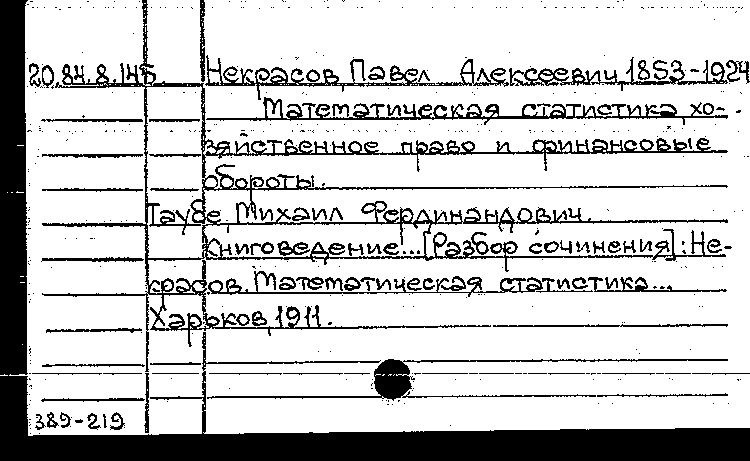 20.84.8.145. Некрасов, Павел Алексеевич, 1853-1924
Математическая статистика, хо-
зяйственное право и финансовые
обороты.
Таубе, Михаил Фердинандович.
Книговедение...[Разбор сочинения]: Не-
красов. Математическая статистика...
Харьков, 1911.
389-219